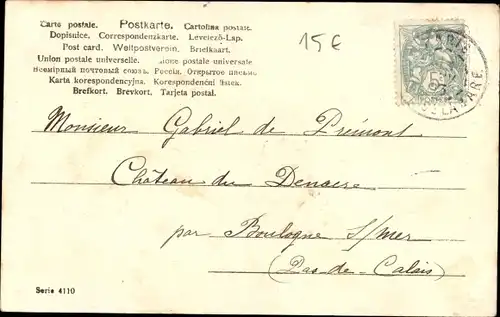 Carte postale. Postkarte. Cartolina postale.
Dopisnice. Correspondenzkarte. Levelező-Lap.
Post card. Weltpostverein. Briefkaart.
Union postale universelle. Unione postale universale
Всемірный почтовый союзъ. Россія. Открытое письмо.
Karta korespondencyjna. Korespondenční lístek.
Brefkort. Brevkort. Tarjeta postal.
15€
5
Monsieur Gabriel de Prémont
Château du Denacre
par Boulogne s/mer
(Pas-de-Calais)
Serie 4110